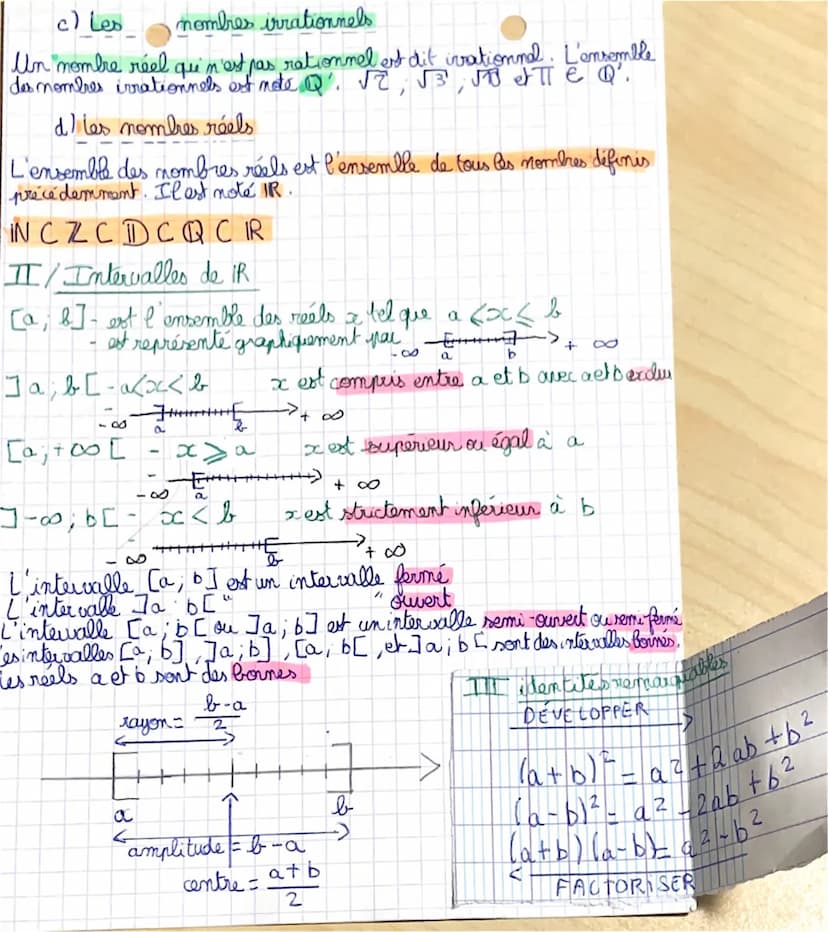 c) Les nombres irrationnels
Un nombre réel qui n'est pas rationnel est dit irrationnel. L'ensemble
des nombres irrationnels est noté ℚ'. √2 ; √3 ; √10 et π ∈ ℚ'.
d) Les nombres réels
L'ensemble des nombres réels est l'ensemble de tous les nombres définis
précédemment. Il est noté ℝ.
ℕ ⊂ ℤ ⊂ 𝔻 ⊂ ℚ ⊂ ℝ
II / Intervalles de ℝ
[a ; b] - est l'ensemble des réels x tel que a ⩽ x ⩽ b
- est représenté graphiquement par
-∞ a b + ∞
]a ; b[ - a < x < b x est compris entre a et b avec a et b exclu
-∞ a b + ∞
[a ; +∞[ - x ⩾ a x est supérieur ou égal à a
-∞ a + ∞
]-∞ ; b[ - x < b x est strictement inférieur à b
-∞ b + ∞
L'intervalle [a ; b] est un intervalle fermé
L'intervalle ]a b[ " " ouvert
L'intervalle [a ; b[ ou ]a ; b] est un intervalle semi-ouvert ou semi-fermé
les intervalles [a ; b] , ]a ; b] , [a ; b[ , et ]a ; b[ sont des intervalles bornés.
les réels a et b sont des bornes
rayon = b-a/2
a b
amplitude = b-a
centre = a+b/2
III identités remarquables
DÉVELOPPER
(a+b)² = a² + 2ab + b²
(a-b)² = a² - 2ab + b²
(a+b)(a-b) = a² - b²
FACTORISER